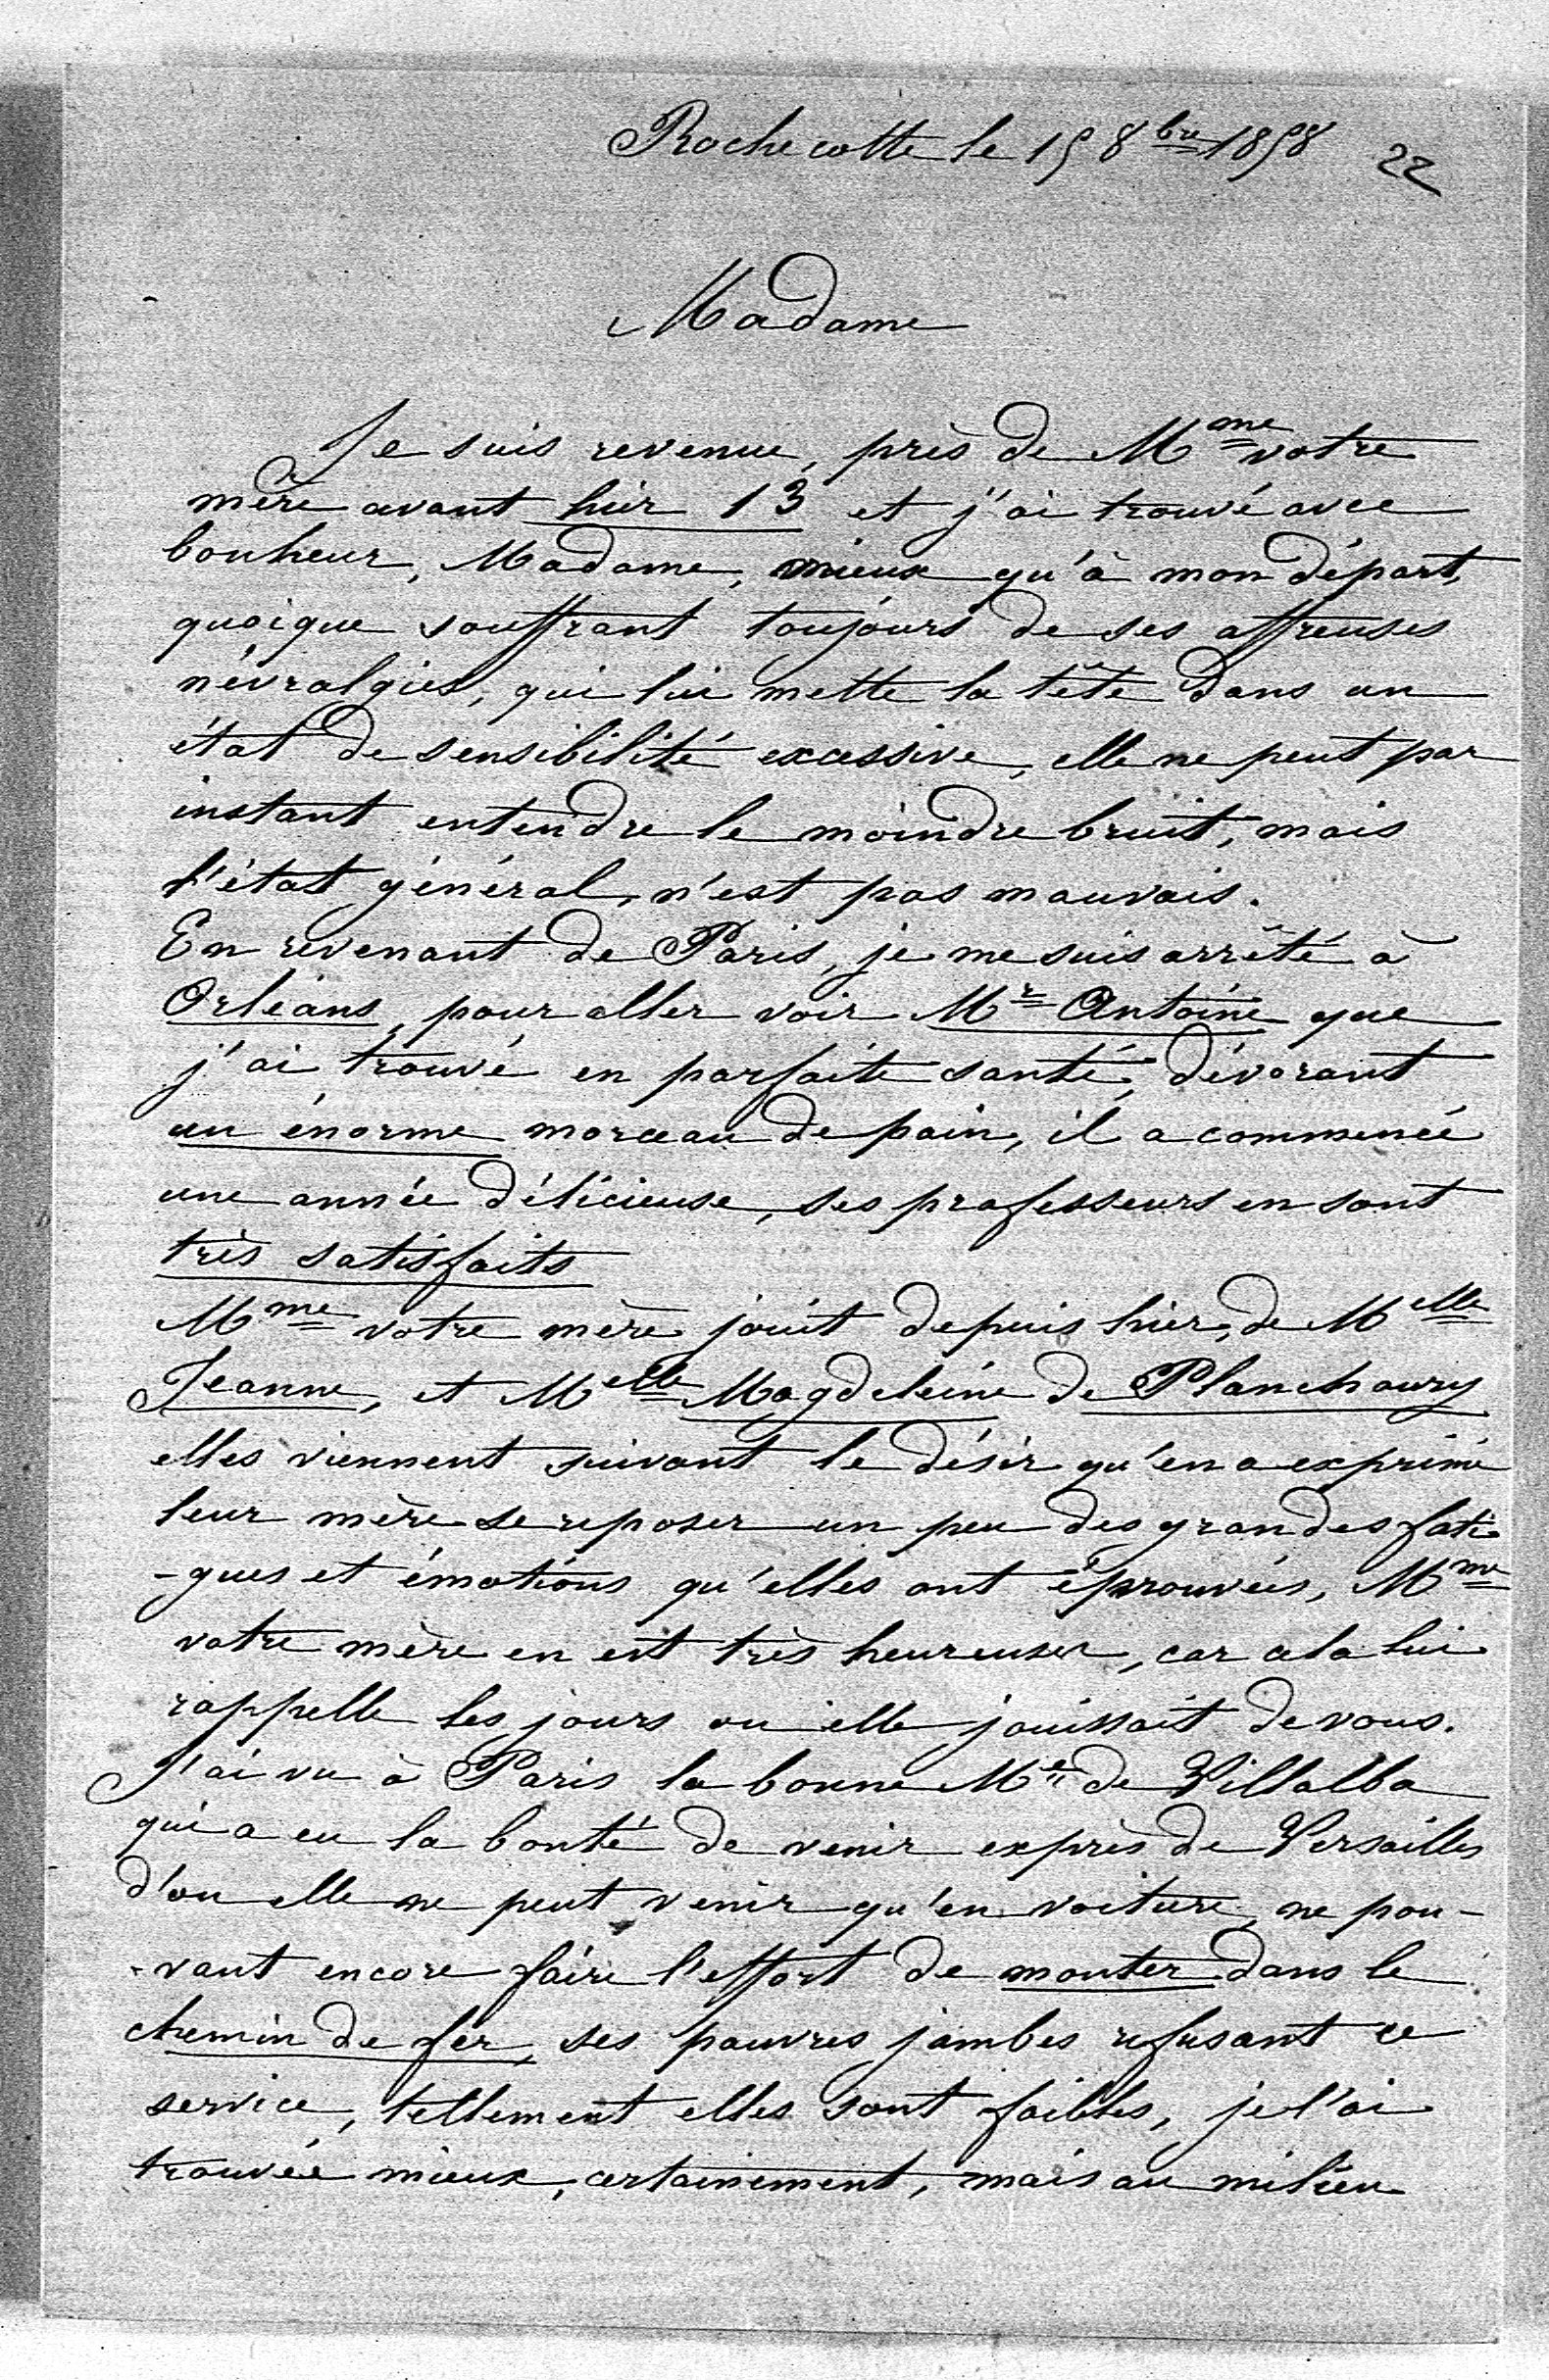 Rochecotte le 15 8bre 1858 22
Madame
Je suis revenue, près de Mme votre
mère avant hier 13 et j'ai trouvé avec
bonheur, Madame, mieux qu'à mon départ,
quoique souffrant toujours de ses affreuses
névralgies, qui lui mette la tête dans un
état de sensibilité excessive, elle ne peut par
instant entendre le moindre bruit, mais
l'état général, n'est pas mauvais.
En revenant de Paris, je me suis arrêté à
Orléans, pour aller voir Mr Antoine que
j'ai trouvé en parfaite santé, dévorant
un énorme morceau de pain, il a commencé
une année délicieuse, ses professeurs en sont
très satisfaits
Mme votre mère jouit depuis hier, de Melle
Jeanne, et Melle Magdeleine de Planchoury
elles viennent suivant le désir qu'en a exprimé
leur mère se reposer un peu des grandes fati
-gues et émotions qu'elles ont éprouvées, Mme
votre mère en est très heureuse, car cela lui
rappelle les jours ou elle jouissait de vous.
J'ai vu à Paris la bonne Me de Villalba
qui a eu la bonté de venir exprès de Versailles
d'ou elle ne peut venir qu'en voiture, ne pou-
-vant encore faire l'effort de monter dans le
chemin de fer, ses pauvres jambes refusant ce
service, tellement elles sont faibles, je l'ai
trouvée mieux, certainement, mais au milieu